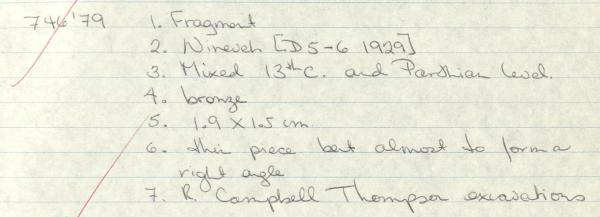 746'79 1. Fragment
2. Nineveh [D5-6 1929]
3. Mixed 13th C. and Parthian level.
4. bronze
5. 1.9 X 1.5 cm
6. thin piece bent almost to form a
right angle
7. R. Campbell Thompson excavations